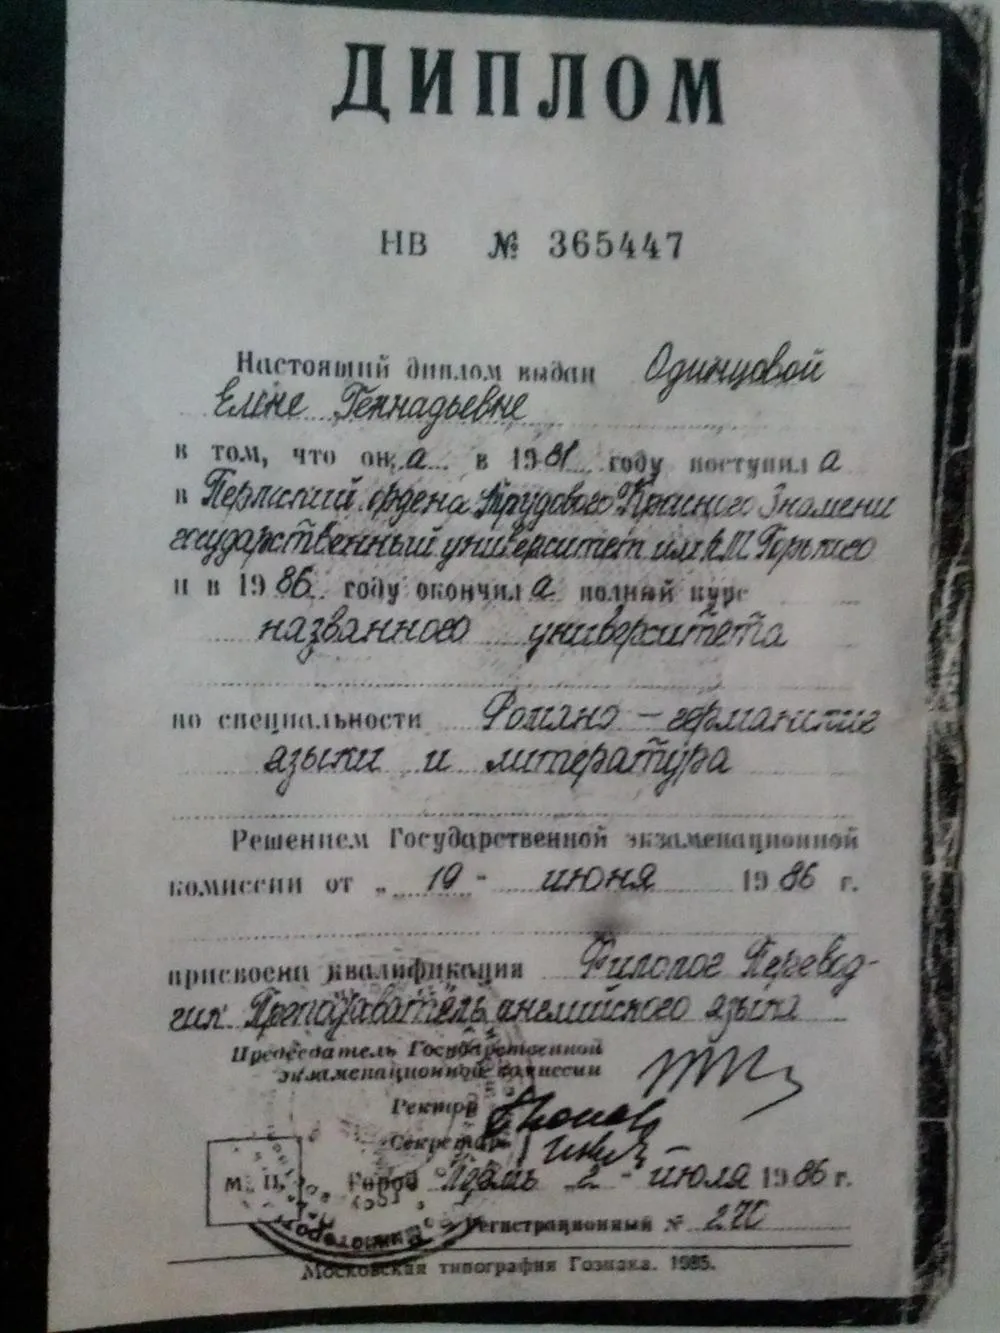 ДИПЛОМ
НВ № 365447
Настоящий диплом выдан Одинцовой
Елене Геннадьевне
в том, что она в 1981 году поступила
в Пермский ордена Трудового Красного Знамени
государственный университет им. А.М. Горького
и в 1986 году окончила полный курс
названного университета
по специальности Романо-германские
языки и литература
Решением Государственной экзаменационной
комиссии от „19" июня 1986 г.
присвоена квалификация Филолог Перевод-
чик Преподаватель английского языка
Председатель Государственной
экзаменационной комиссии
Ректор
Секретарь
М. П. Город Пермь 2 - июля 1986 г.
Регистрационный № 270
Московская типография Гознака. 1985.